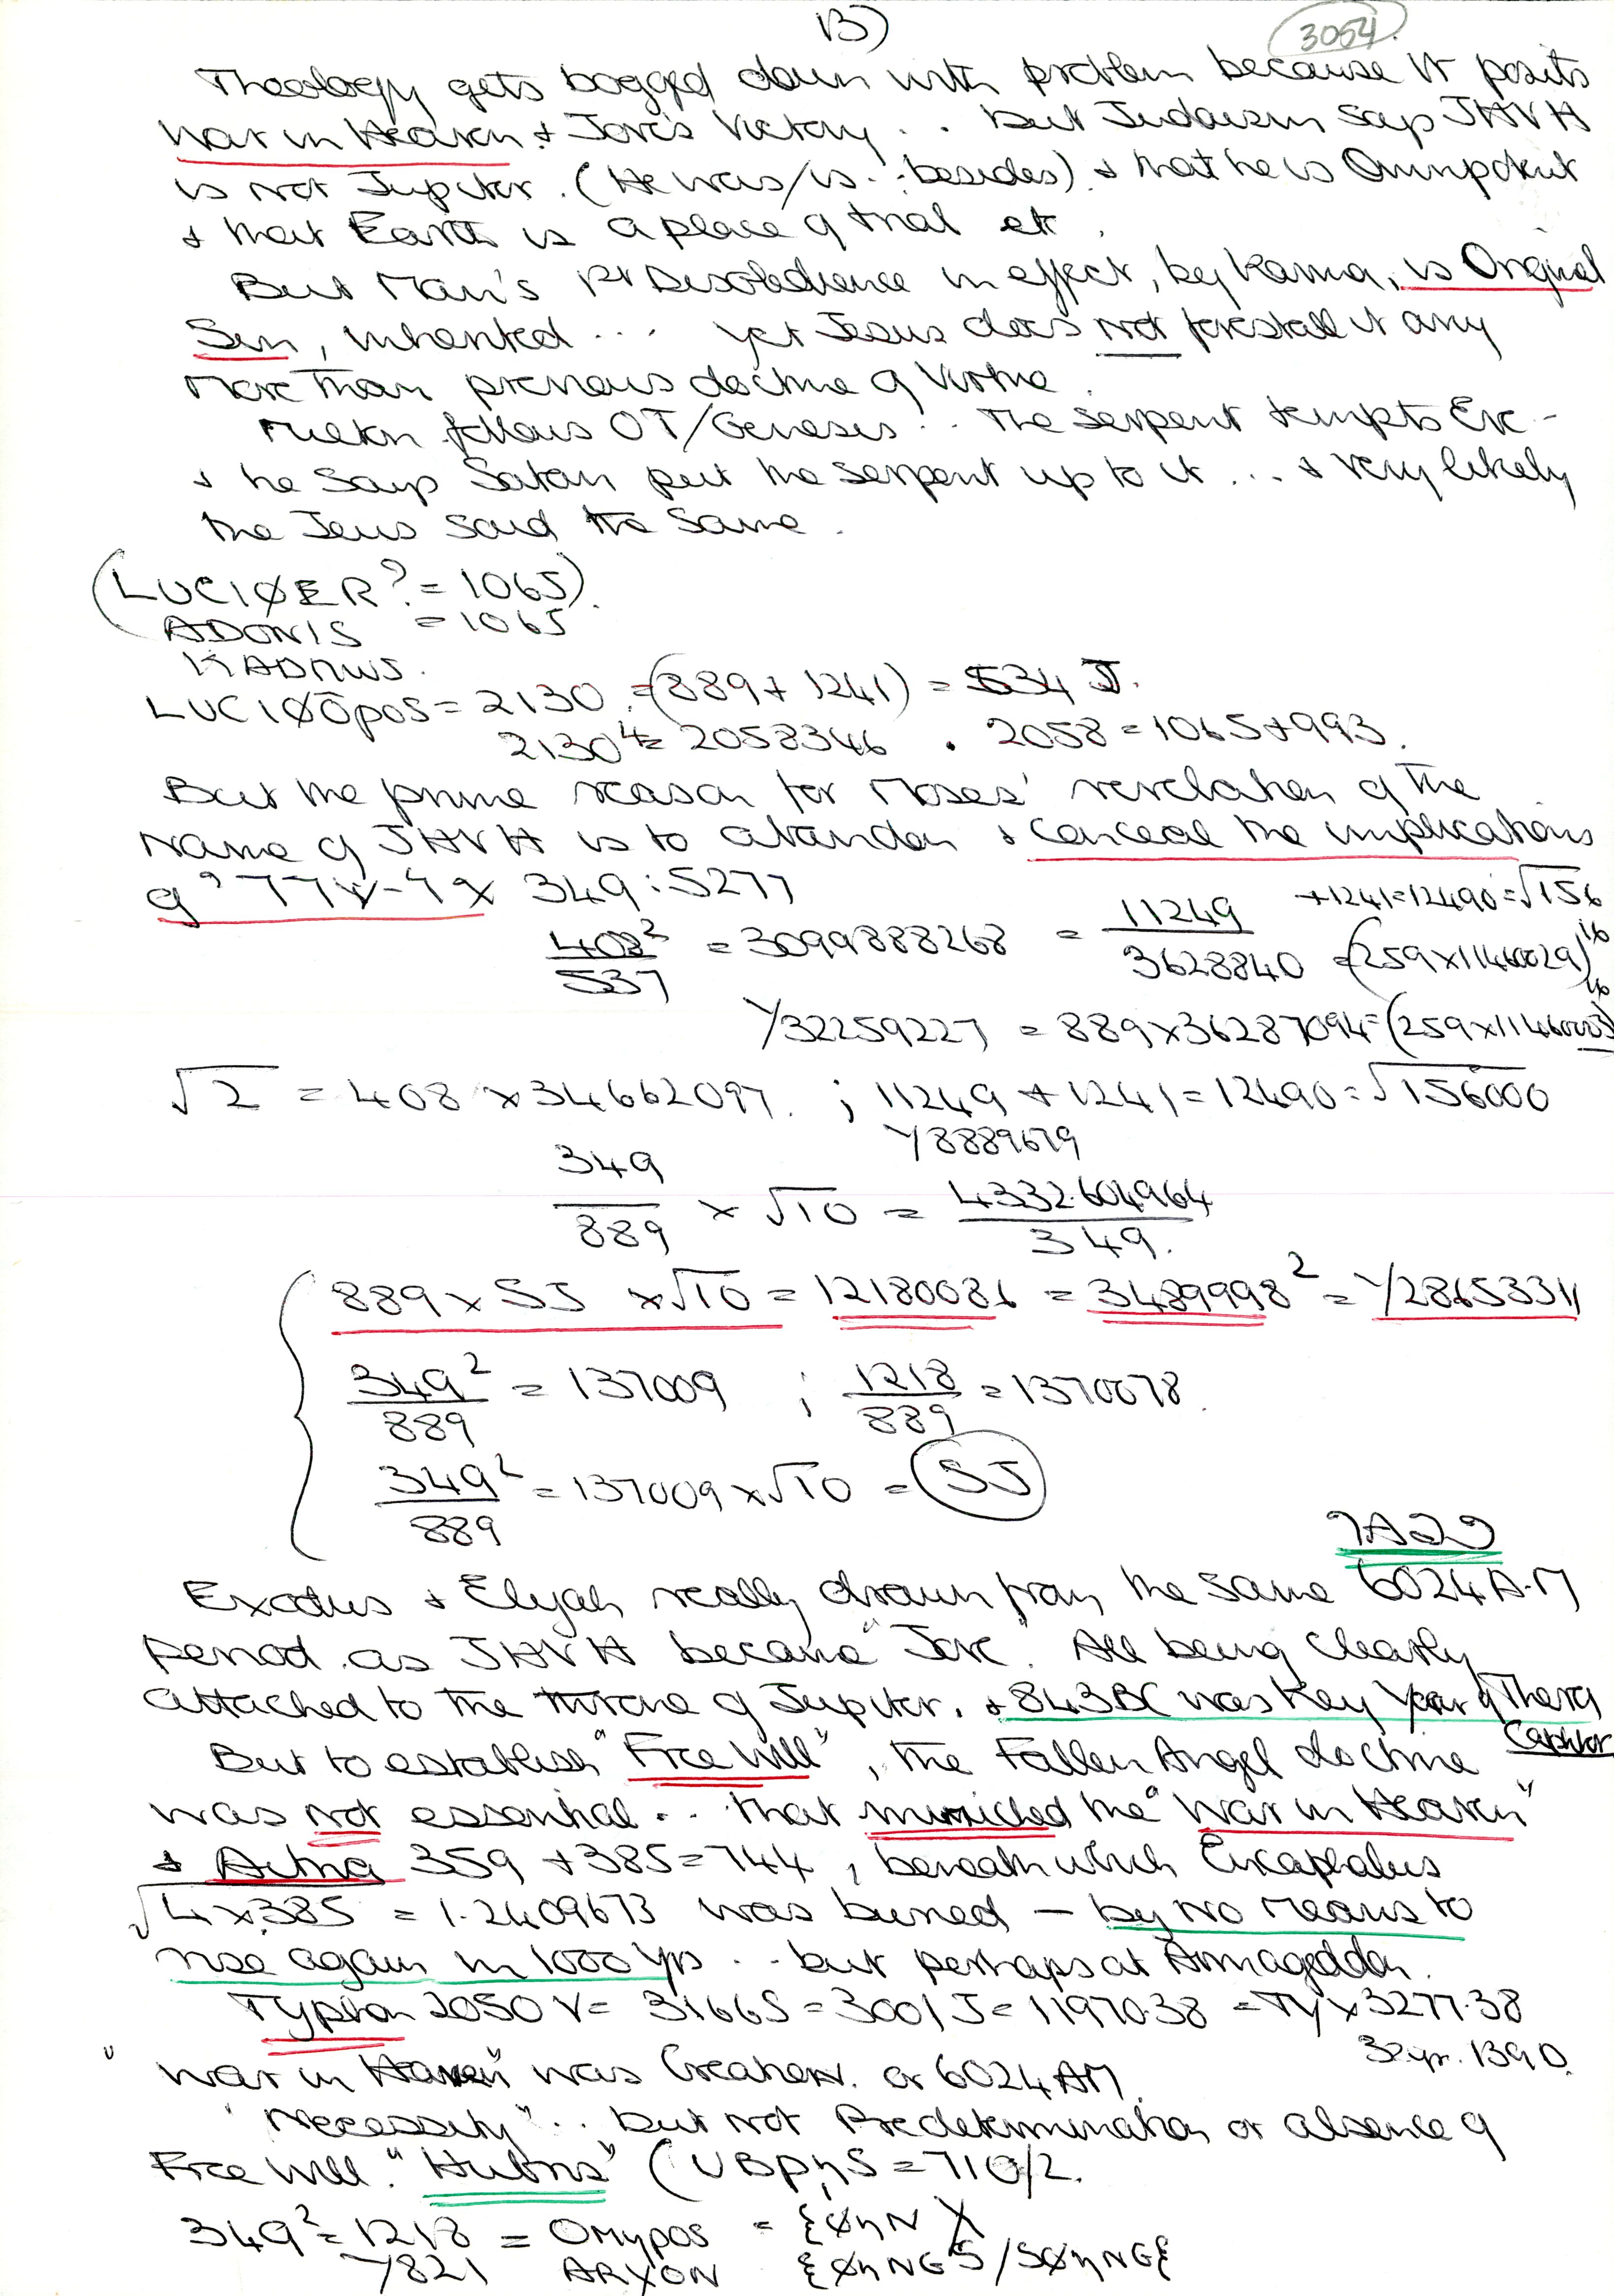 13)
3054.
Theology gets bogged down with problem because it posits
War in Heaven & Jove's Victory .. But Judaism says JHVH
is not Jupiter. (He was/is .. besides) & that he is Omnipotent
& that Earth is a place of trial etc.
But Man's 1st Disobedience in effect, by Karma, is Original
Sin, inherited ... yet Jesus does not forestall it any
more than previous doctrine of Virtue.
Milton follows OT/Genesis .. The serpent tempts Eve -
& he says Satan put the serpent up to it ... & very likely
the Jews said the same.
(LUCIØER? = 1065).
ADONIS = 1065
KADMUS.
LUCIØŌpos = 2130 = (889 + 1241) = 534 J.
2130⁴ = 2058346 . 2058 = 1065 + 993.
But the prime reason for Moses' revelation of the
Name of JHVH is to abandon & conceal the implications
of 349 : 5277
408²/537 = 3099888268 = 11249/3628840 +1241=12490=√156
=(259×11460029)
Y32259227 = 889×36287094=(259×1146000
√2 = 408 × 34662097. ; 11249 + 1241 = 12490 = √156000
Y8889679
349/889 × √10 = 4332.604964/349.
889 × SJ × √10 = 12180086 = 3489998² = Y2865331
349²/889 = 137009 ; 1218/889 = 1370078.
349²/889 = 137009 × √10 = SJ
Exodus & Elijah really drawn from the same 6024 A.M
period as JHVH became "Jove". All being clearly
attached to the throne of Jupiter. & 843BC was key year of Thera
But to establish "Free Will", the Fallen Angel doctrine
was not essential .. that mimicked the "War in Heaven"
& Aetna 359 + 385 = 744, beneath which Encephalus
√4×385 = 1.2409673 was buried - by no means to
rise again in 1000 yrs .. but perhaps at Armageddon.
Typhon 2050 V = 3166S = 3001J = 11970.38 = TY × 3277.38
32 yr. 1390.
"War in Heaven" was Creation. or 6024AM.
"Necessity" .. but not Predetermination or absence of
Free Will. "Hubris" (UBPηS = 710/2.
349² = 1218 = OMηpOS = {ØηN X
Y821 ARXON {ØηNGS/SØηNG{